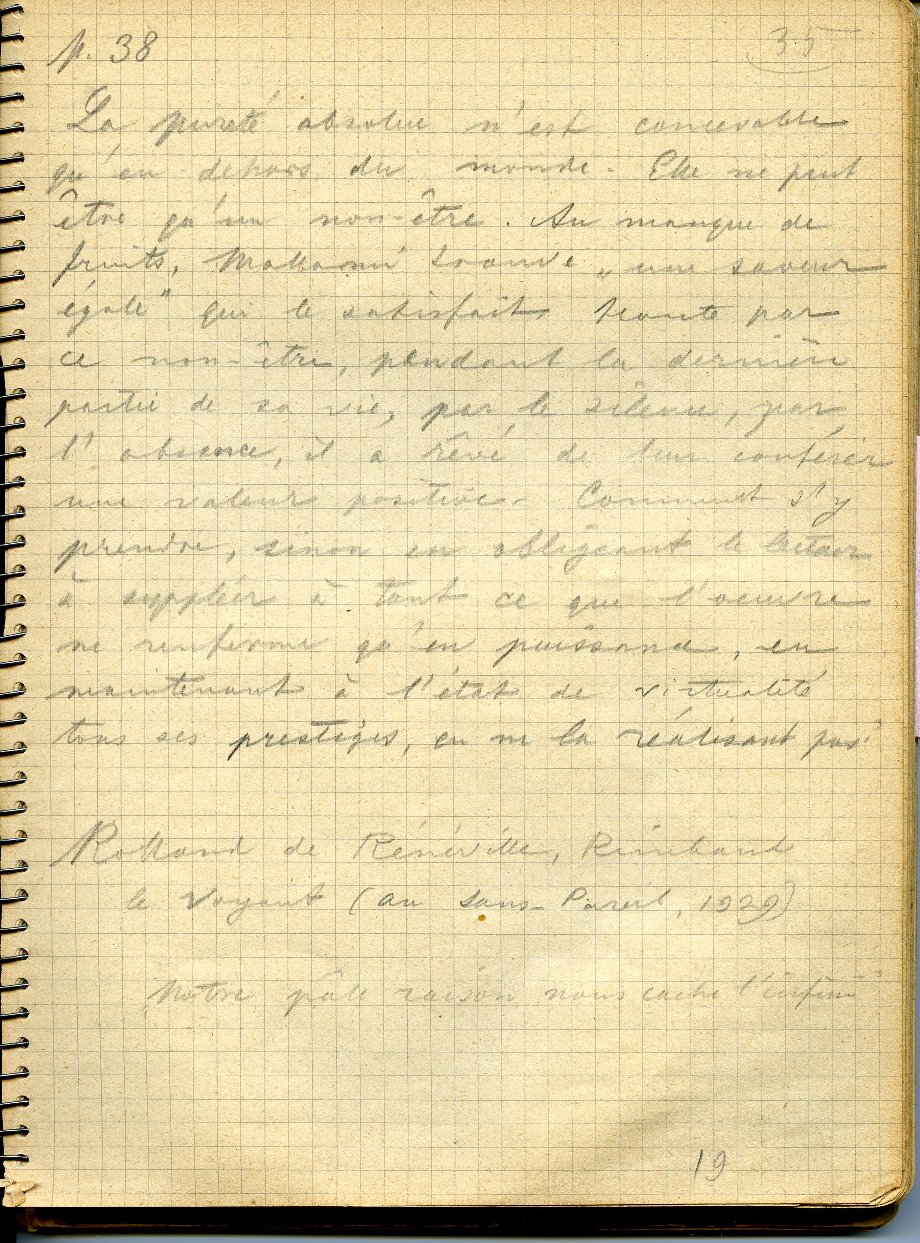 p. 38
35
La pureté absolue n'est concevable
qu'en dehors du monde. Elle ne peut
être qu'un non-être. Au manque de
fruits, Mallarmé trouve „une saveur
égale" qui le satisfait. Hanté par
ce non-être, pendant la dernière
partie de sa vie, par le silence, par
l'absence, il a rêvé de leur conférer
une valeur positive. Comment s'y
prendre, sinon en obligeant le lecteur
à suppléer à tout ce que l'oeuvre
ne renferme qu'en puissance, en
maintenant à l'état de virtualité
tous ses prestiges, en ne la réalisant pas"
Rolland de Renéville, Rimbaud
le Voyant (Au Sans-Pareil, 1929)
„Notre pâle raison nous cache l'infini"
19